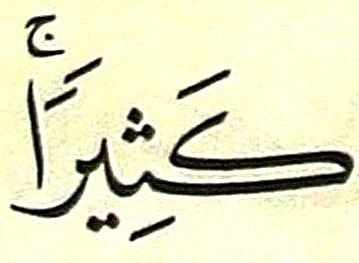 كَثِيرًاۚ